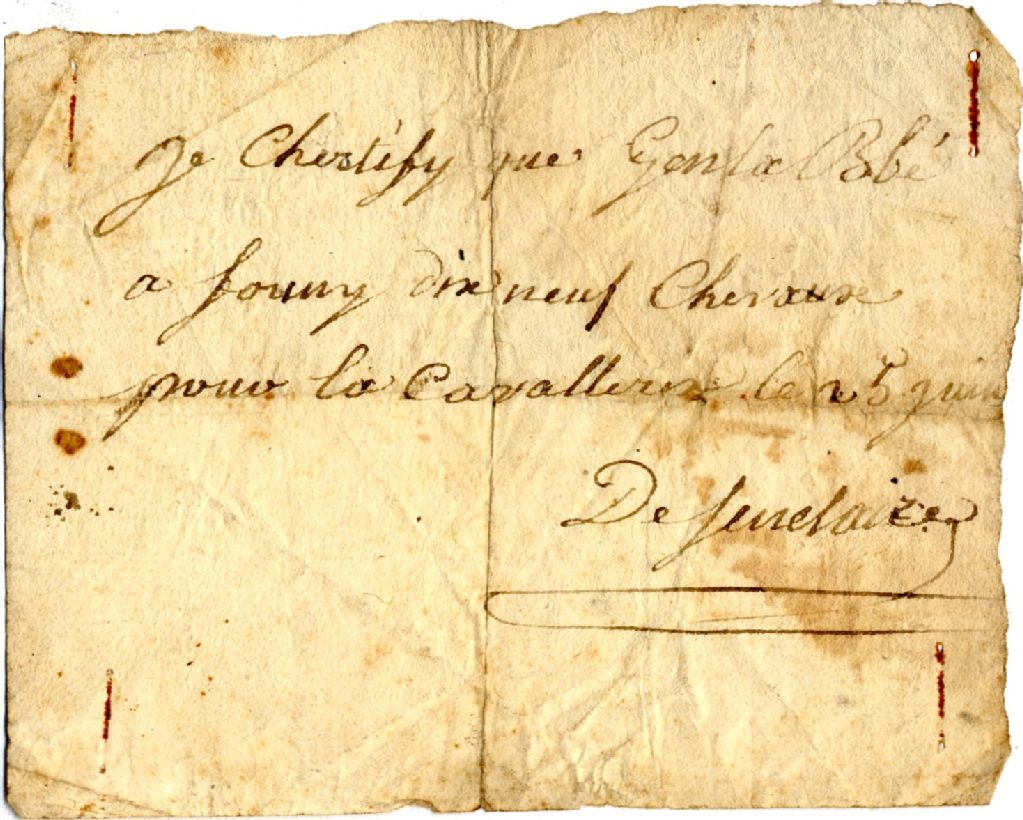 Je Chertify que Gen la Bbé
a fourny dix neuf Chevaux
pour la Cavallerie le 25 juin
De senclaize